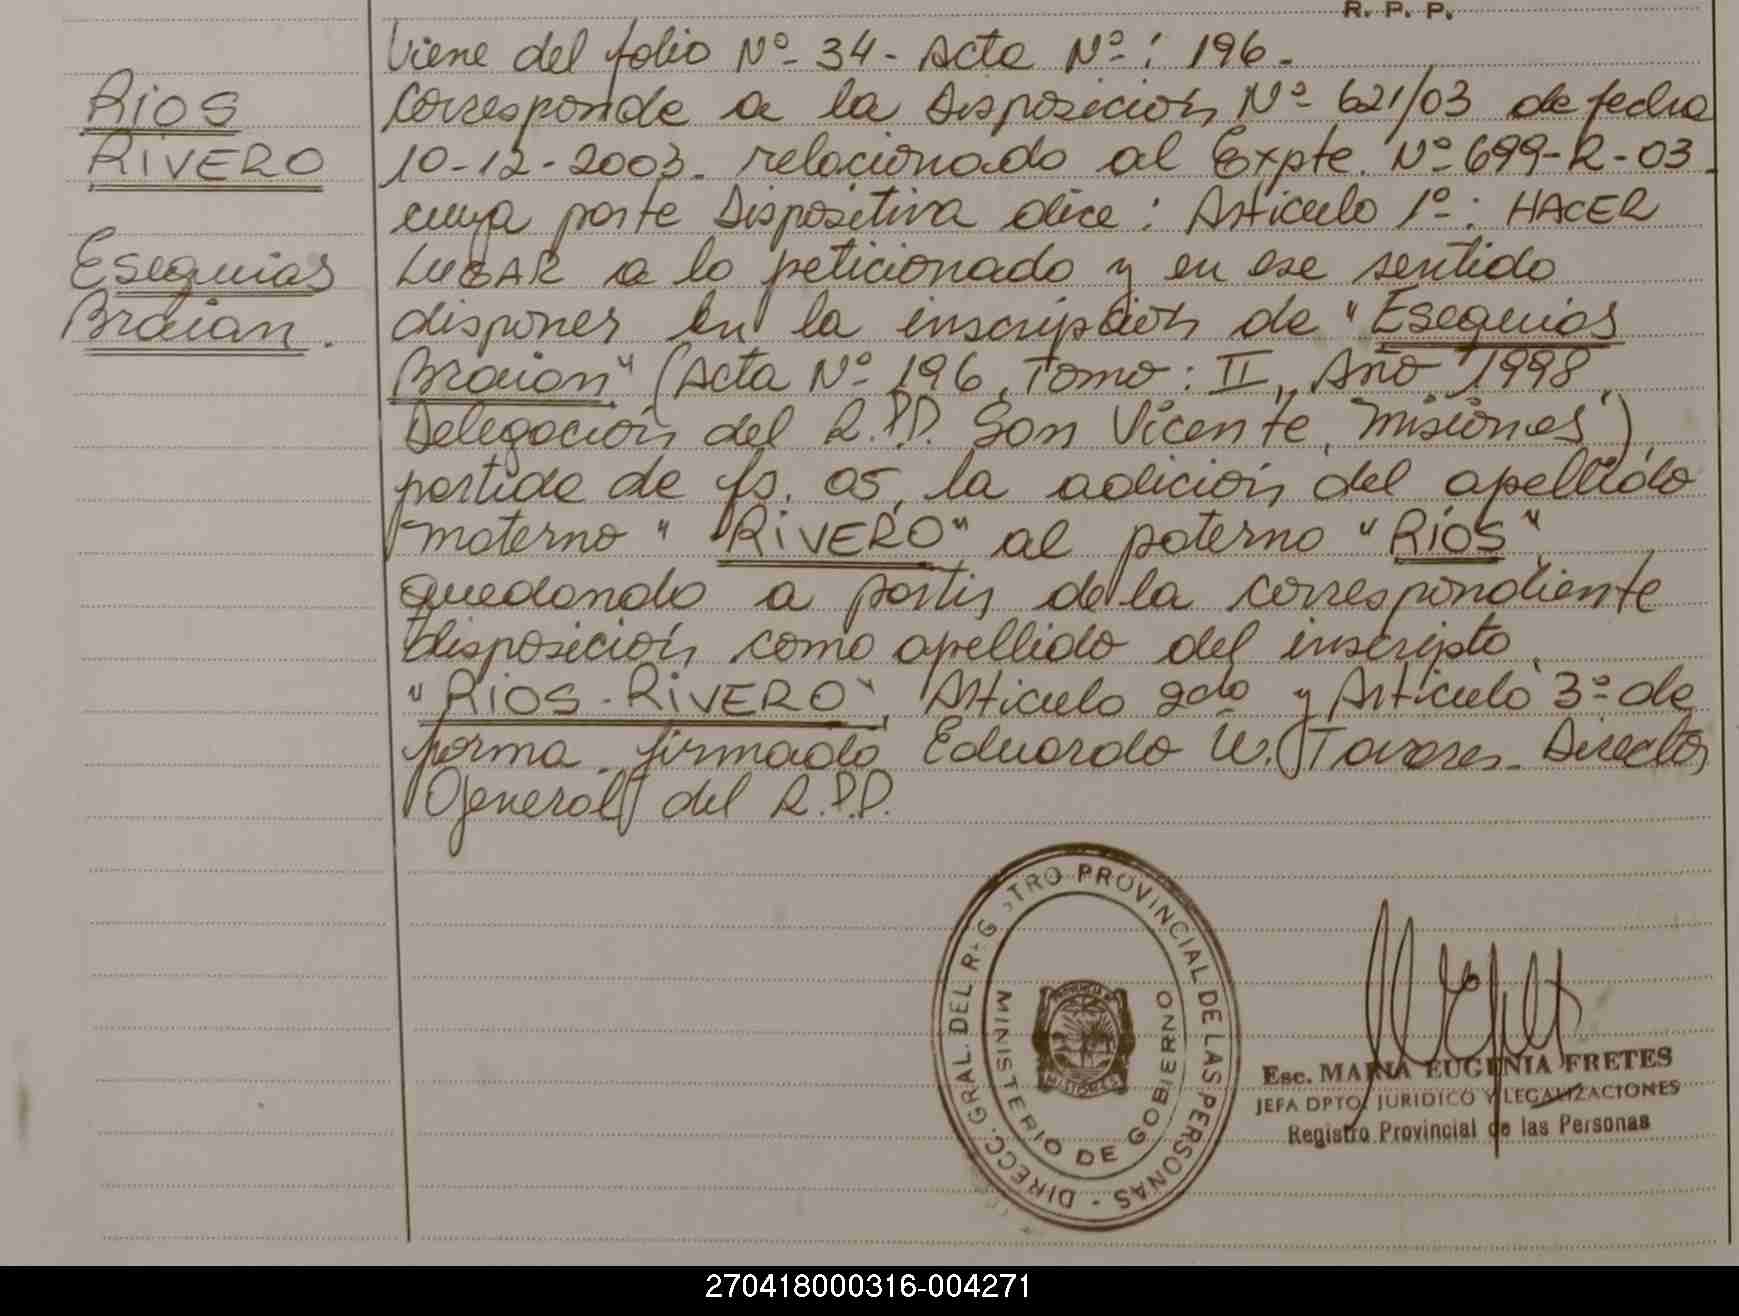 R. P. P.
Viene del folio Nº 34 - Acta Nº: 196.-
RIOS
RIVERO
Esequias
Braian.
Corresponde a la Disposición Nº 621/03 de fecha
10-12-2003. relacionado al Expte. Nº 699-R-03.
cuya parte Dispositiva dice: Artículo 1º: HACER
LUGAR a lo peticionado y en ese sentido
disponer en la inscripción de "Esequias
Braian" (Acta Nº 196, Tomo: II, Año 1998
Delegación del R.P.P. San Vicente, Misiones)
partida de fs. 05, la adición del apellido
materno "RIVERO" al paterno "RIOS",
quedando a partir de la correspondiente
disposición como apellido del inscripto,
"RIOS - RIVERO", Artículo 2do y Artículo 3º de
forma. firmado Eduardo W. Tavares. Director
General del R.P.P.
DIRECC. GRAL. DEL REGISTRO PROVINCIAL DE LAS PERSONAS -
MINISTERIO DE GOBIERNO
MISIONES
Esc. MARIA EUGENIA FRETES
JEFA DPTO. JURIDICO Y LEGALIZACIONES
Registro Provincial de las Personas
270418000316-004271